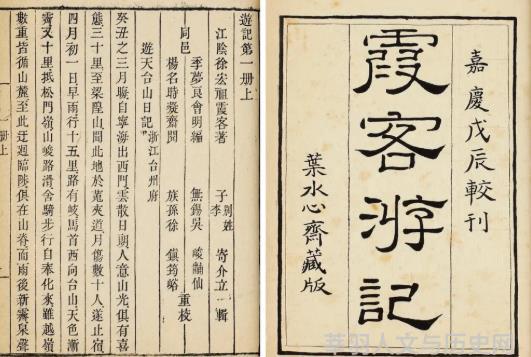 嘉慶戊辰較刊
霞客游記
葉水心齋藏版
遊記第一冊上
江陰徐宏祖霞客著 子李別姓寄介立輯
季夢良會明編 無錫吳峻仙
同邑 重校
楊名時凝齋閱 族孫徐鎮筠峪
遊天台山日記浙江台州府
癸丑之三月晦自寧海出西門雲散日朗人意山光俱有喜
態三十里至梁隍山聞此地於菟夾道月傷數十人遂止宿
四月初一日早雨行十五里路有岐馬首西向台山天色漸
霽又十里抵松門嶺山峻路滑舍騎步行自奉化來雖越嶺
數重皆循山麓至此迂迴臨陟俱在山脊而雨後新霽泉聲
冊上
羽人文与历史网